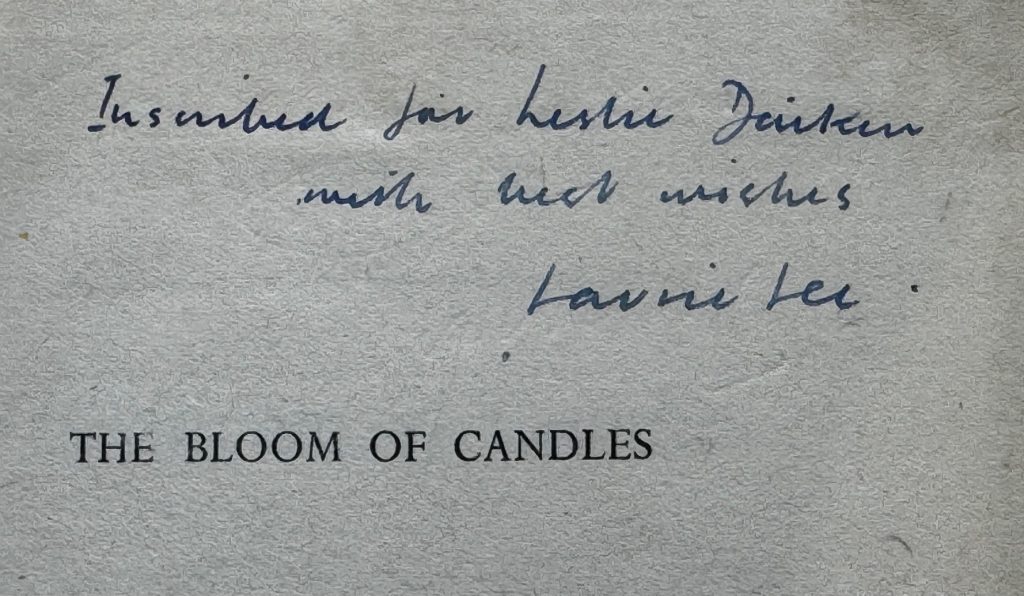 Inscribed for Leslie Daiken
with best wishes
Laurie Lee.
THE BLOOM OF CANDLES